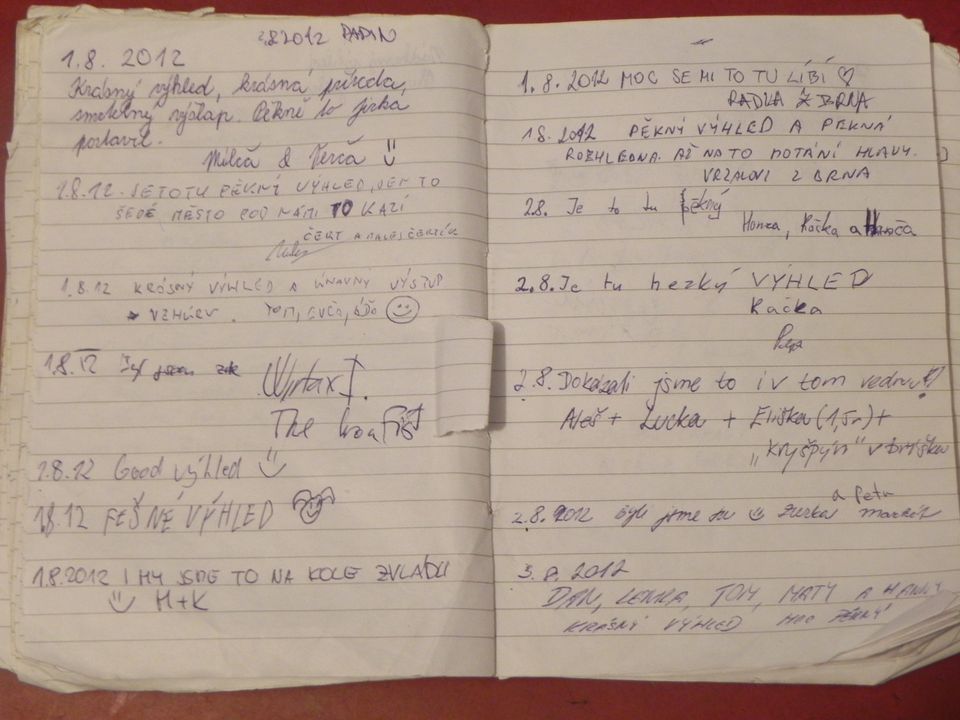 2.8.2012
1.8. 2012
Krásný výhled, krásná příroda,
smrtelný výšlap. Pěkně to jirka
postavil.
Milča & Verča
1.8.12. JE TO TU PĚKNÝ VÝHLED, JEN TO
ŠEDÉ MĚSTO POD NÁMI TO KAZÍ
ČERT A MALEJ ČERTÍK
1.8.12 KRÁSNÝ VÝHLED A ÚNAVNÝ VÝSTUP
VZHŮRU. TOM,
1.8.12
The Iron Fist
1.8.12 Good výhled
1.8.12 FEŠNÉ VÝHLED
1.8.2012 I MY JSME TO NA KOLE ZVLÁDLI
M+K
1.8.2012 MOC SE MI TO TU LÍBÍ ♡
RADKA Z BRNA
1.8.2012 PĚKNÝ VÝHLED A PEKNÁ
ROZHLEDNA. AŽ NA TO MOTÁNÍ HLAVY.
Z BRNA
2.8. Je to tu pěkný
Honza, Káčka a
2.8. Je tu hezký VÝHLED
Kačka
Pepa
2.8. Dokázali jsme to i v tom vedru
Aleš + Lucka + Eliška (1,5r) +
„Kryšpýn" v bříšku
a Petr
2.8.2012 byli jsme tu
3.8.2012
DAN, LENKA, TOM, MATY A HANKA
KRÁSNÝ VÝHLED MOC